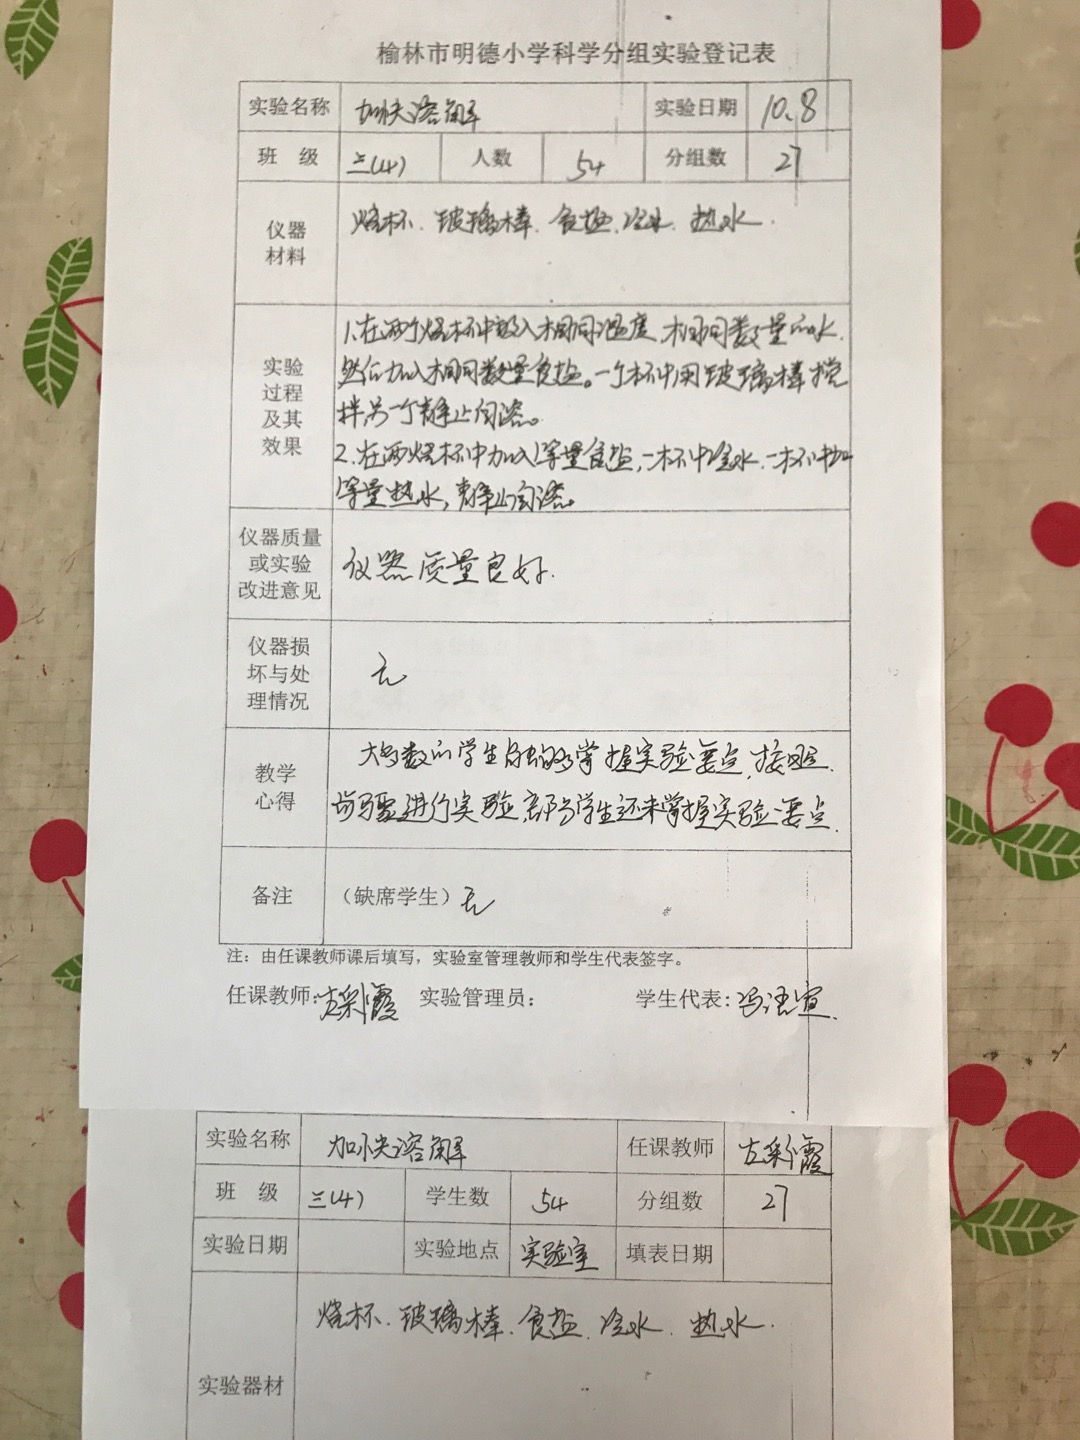 榆林市明德小学科学分组实验登记表
实验名称 加快溶解 实验日期 10.8
班 级 三(4) 人数 54 分组数 27
仪器材料 烧杯、玻璃棒、食盐、冷水、热水.
实验过程及其效果
1.在两个烧杯中放入相同温度、相同数量的水.
然后加入相同数量食盐。一个杯中用玻璃棒搅
拌另一个静止自溶。
2.在两烧杯中加入等量食盐,一杯中冷水.一杯中加
等量热水,静止自溶。
仪器质量或实验改进意见 仪器质量良好.
仪器损坏与处理情况 无
教学心得
大多数的学生能够掌握实验要点,按照
步骤进行实验,部分学生还未掌握实验要点.
备注 (缺席学生)无
注:由任课教师课后填写,实验室管理教师和学生代表签字。
任课教师:左彩霞 实验管理员: 学生代表:冯语宣.
实验名称 加快溶解 任课教师 左彩霞
班 级 三(4) 学生数 54 分组数 27
实验日期 实验地点 实验室 填表日期
实验器材 烧杯、玻璃棒、食盐、冷水、热水.